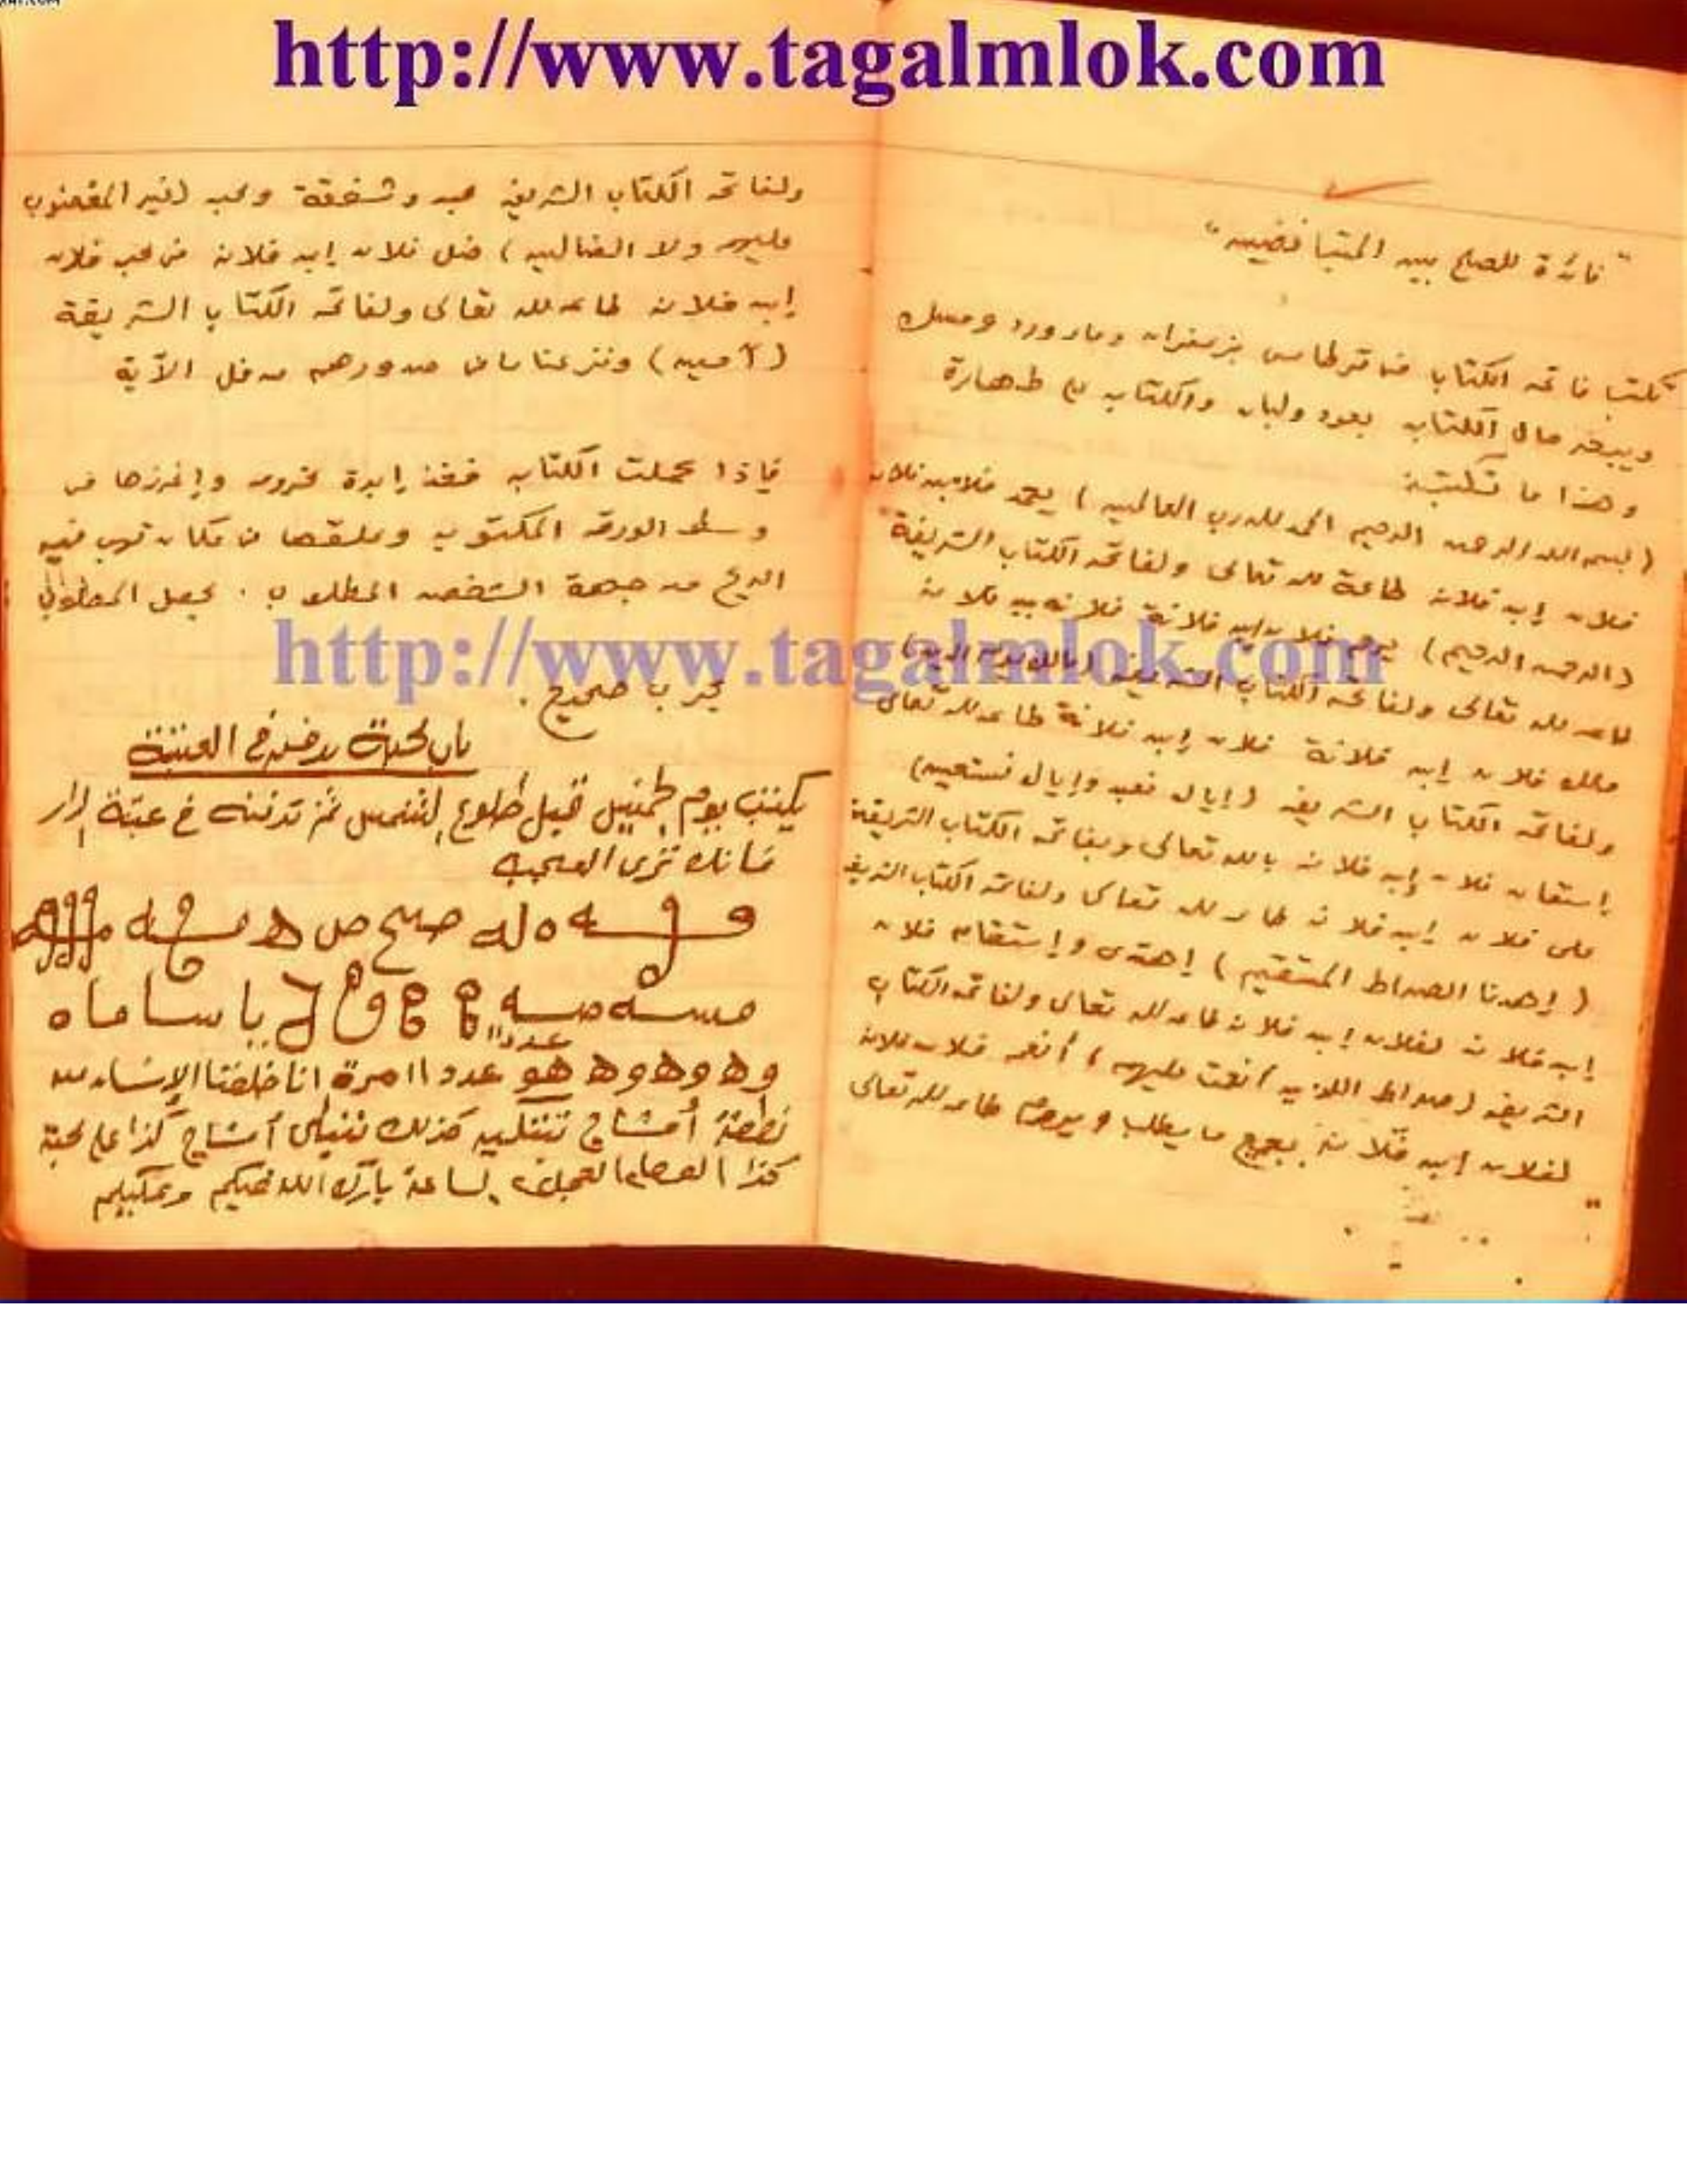 http://www.tagalmlok.com
"فائدة للصلح بين المتباغضين"
تكتب فاتحة الكتاب في قرطاس بزعفران وماء ورد ومسك
ويبخر حال الكتاب بعود ولبان والكتاب على طهارة
وهذا ما تكتبه
(بسم الله الرحمن الرحيم الحمد لله رب العالمين) يحمد فلان بن فلان
فلان إبن فلانة طاعة لله تعالى ولفاتحة الكتاب الشريفة
(الرحمن الرحيم) يرحم فلان إبن فلانة فلانه بن فلانة
طاعه لله تعالى ولفاتحة الكتاب الشريفة (مالك يوم الدين)
ملك فلان إبن فلانة فلان إبن فلانة طاعه لله تعالى
ولفاتحة الكتاب الشريفة (إياك نعبد وإياك نستعين)
إستعان فلان إبن فلانة بالله تعالى وبفاتحة الكتاب الشريفة
على فلان إبن فلانة طاعه لله تعالى ولفاتحة الكتاب الشريفة
(إهدنا الصراط المستقيم) إهتدى وإستقام فلان
إبن فلانة لفلان إبن فلانة طاعه لله تعالى ولفاتحة الكتاب
الشريفة (صراط الذين أنعمت عليهم) أنعم فلان فلانة
لفلان إبن فلانة بجميع ما يطلب و طاعه لله تعالى
ولفاتحة الكتاب الشريفة وشفقة (غير المغضوب
عليهم ولا الضالين) ضل فلان إبن فلانة في محبة فلان
إبن فلانة طاعه لله تعالى ولفاتحة الكتاب الشريفة
(آمين) ونزعنا ما في صدورهم من غل الآية
فإذا عملت الكتاب فخذ إبرة وإغرزها في
وسط الورقة المكتوبه وعلقها في مكان تهب فيه
الريح من جهة الشخص المطلوب . يحصل المطلوب
http://www.tagalmlok.com
مجرب صحيح .
باب محبة يدفن في العتبة
يكتب يوم الخميس قبل طلوع الشمس ثم تدفنه في عتبة الدار
فانك ترى العجب
يا سا ما ه
عدد ١١
وه وه وه هو عدد ١١ مرة انا خلقنا الإنسان من
نطفة أمشاج نبتليه كذلك أمشاج كذا على محبة
كذا العجل الساعة بارك الله فيكم وعليكم